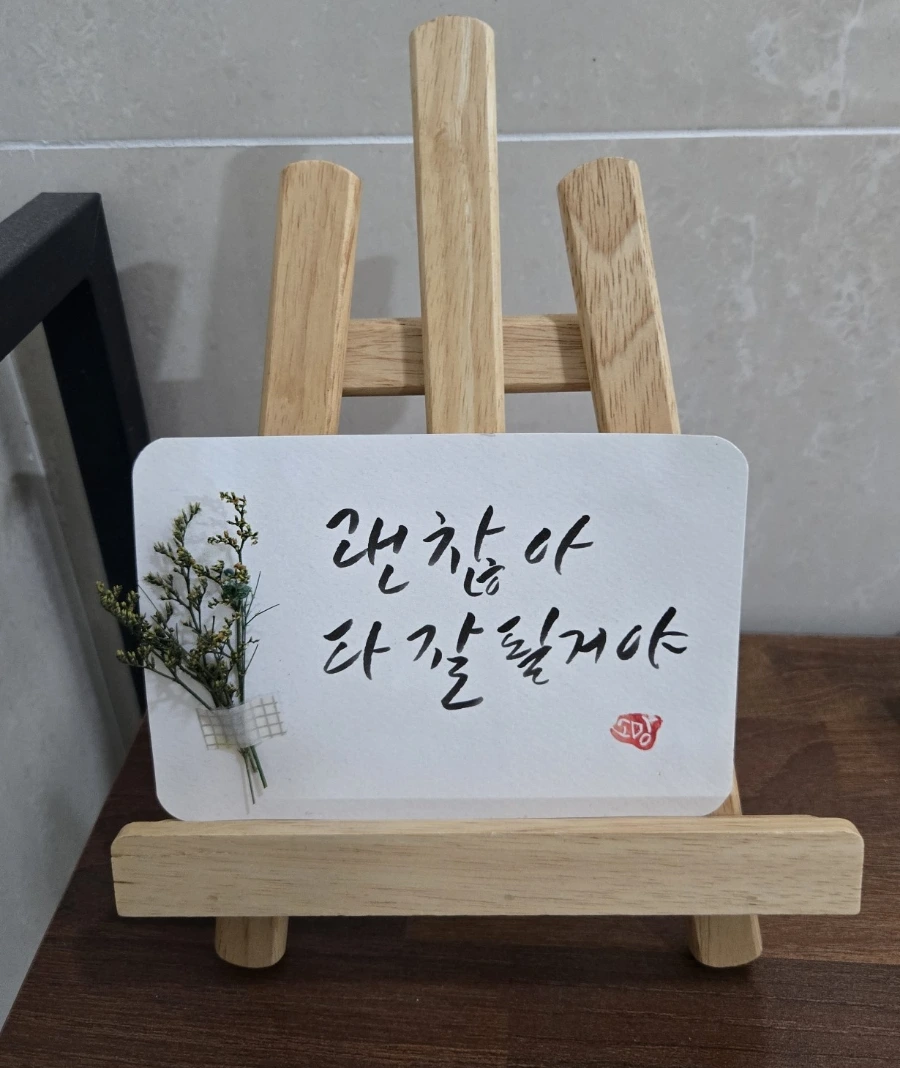 괜찮아
다 잘 될거야